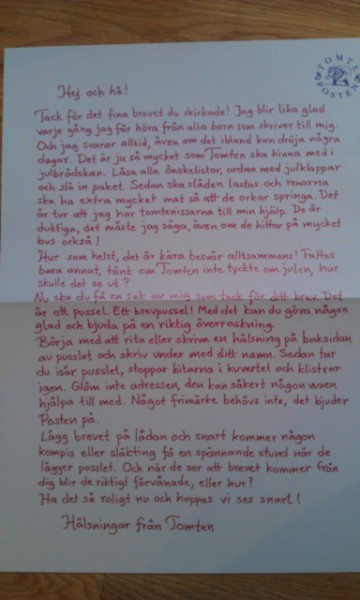 TOMTE
POSTEN
Hej och hå!
Tack för det fina brevet du skickade! Jag blir lika glad
varje gång jag får höra från alla barn som skriver till mig.
Och jag svarar alltid, även om det ibland kan dröja några
dagar. Det är ju så mycket som Tomten ska hinna med i
julbrådskan. Läsa alla önskelistor, ordna med julklappar
och slå in paket. Sedan ska släden lastas och renarna
ska ha extra mycket mat så att de orkar springa. Det
är tur att jag har tomtenissarna till min hjälp. De är
duktiga, det måste jag säga, även om de hittar på mycket
bus också!
Hur som helst, det är kära besvär alltsammans! Fattas
bara annat, tänk om Tomten inte tyckte om julen, hur
skulle det se ut?
Nu ska du få en sak av mig som tack för ditt brev. Det
är ett pussel. Ett brevpussel! Med det kan du göra någon
glad och bjuda på en riktig överraskning.
Börja med att rita eller skriva en hälsning på baksidan
av pusslet och skriv under med ditt namn. Sedan tar
du isär pusslet, stoppar bitarna i kuvertet och klistrar
igen. Glöm inte adressen, den kan säkert någon vuxen
hjälpa till med. Något frimärke behövs inte, det bjuder
Posten på.
Lägg brevet på lådan och snart kommer någon
kompis eller släkting få en spännande stund när de
lägger pusslet. Och när de ser att brevet kommer från
dig blir de riktigt förvånade, eller hur?
Ha det så roligt nu och hoppas vi ses snart!
Hälsningar från Tomten